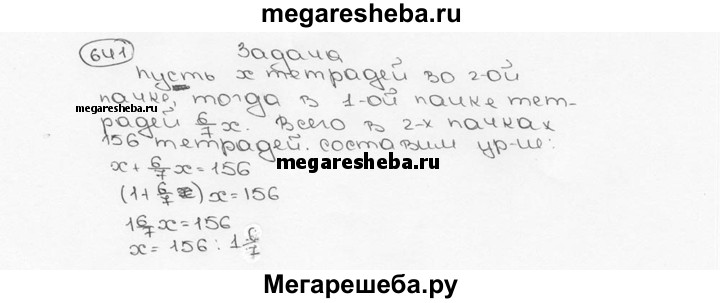 megaresheba.ru
641 Задача
пусть x тетрадей во 2-ой
пачке, тогда в 1-ой пачке тет-
megaresheba.ru
радей 6/7 x. Всего в 2-х пачках
156 тетрадей. составим ур-ие:
megaresheba.ru
x + 6/7 x = 156
(1 + 6/7) x = 156
1 6/7 x = 156
x = 156 : 1 6/7
Мегарешеба.ру